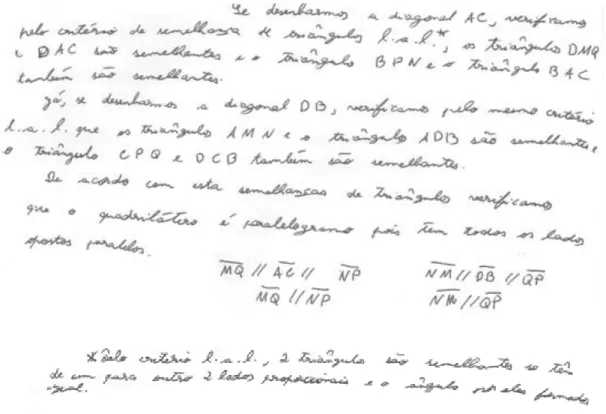 Se desenharmos a diagonal AC, verificamos
pelo critério de semelhança de triângulos l.a.l.*, os triângulos DMQ
e DAC são semelhantes e o triângulo BPN e o triângulo BAC
também são semelhantes.
Já, se desenharmos a diagonal DB, verificamos pelo mesmo critério
l.a.l. que os triângulo AMN e o triângulo ADB são semelhantes e
o triângulo CPQ e DCB também são semelhantes.
De acordo com esta semelhanças de triângulos verificamos
que o quadrilátero é paralelogramo pois tem todos os lados
opostos paralelos.
M̅Q̅ // A̅C̅ // N̅P̅ N̅M̅ // D̅B̅ // Q̅P̅
M̅Q̅ // N̅P̅ N̅M̅ // Q̅P̅
* Pelo critério l.a.l., 2 triângulo são semelhantes se têm
de um para outro 2 lados proporcionais e o ângulo por eles formados
igual.